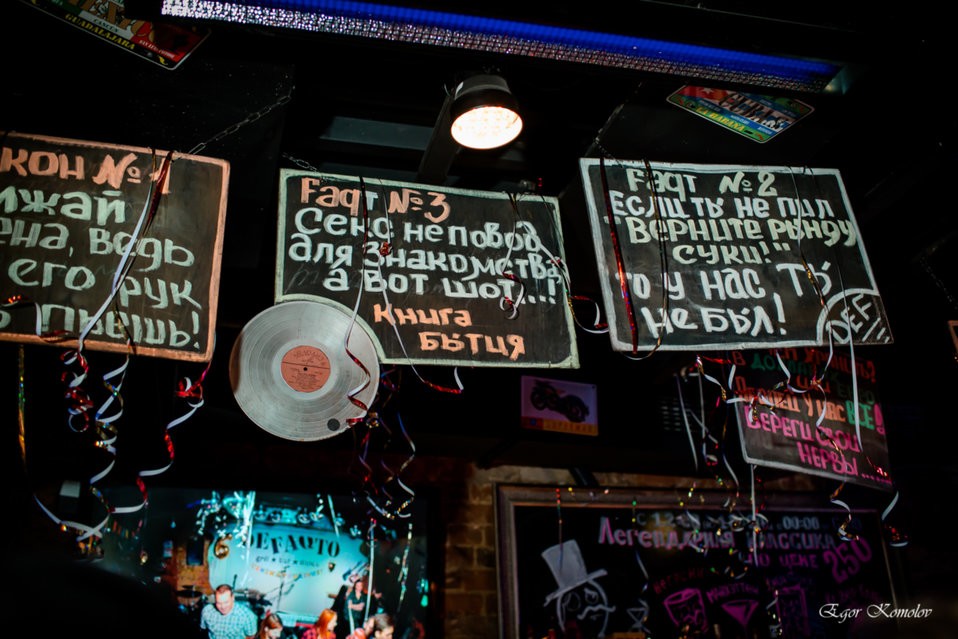 КОН № 1
ИЖАЙ
ЕНА, ВЕДЬ
ЕГО РУК
ПЬЕШЬ!
FaqT №3
Секс не повод
для знакомства,
а вот шот...!
Книга
Бытия
FaqT №2
ЕСЛИ ТЫ НЕ ПИЛ
"ВЕРНИТЕ РЫНДУ
СУКИ!"
ТО У НАС ТЫ
НЕ БЫЛ!
DEF
ВСЕ!
БЕРЕГИ СВОИ
НЕРВЫ....
DEFAUTO
00:00
Легендарная классика
по цене 250
GUADALAJARA
Egor Komolov